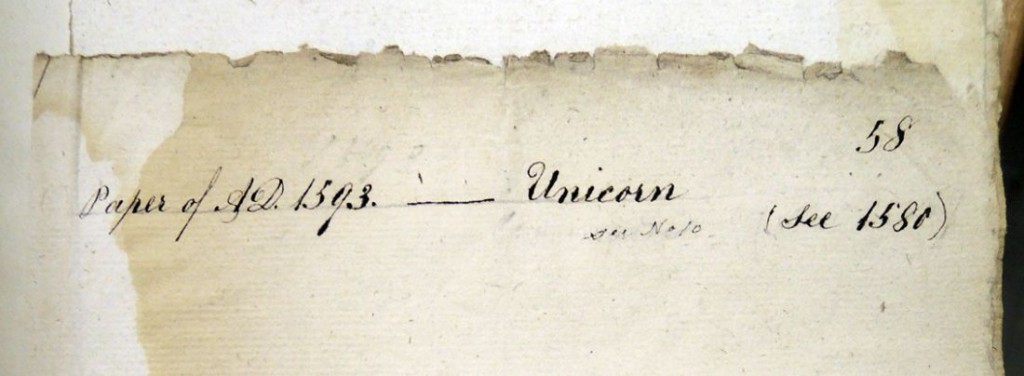 58
Paper of A.D. 1593. — Unicorn (See 1580)
see No 10